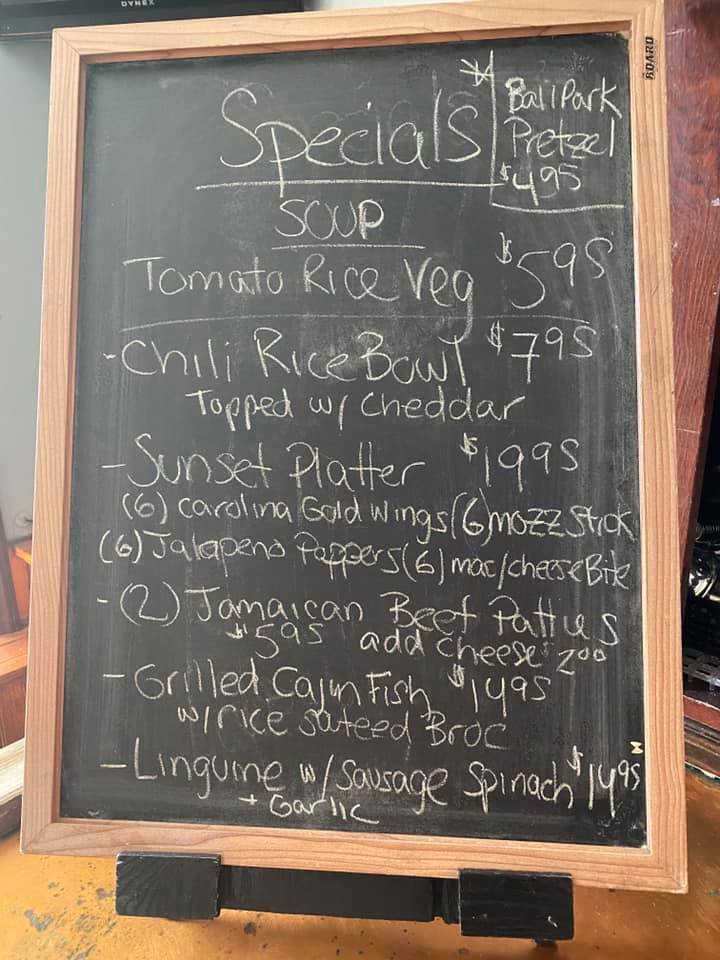 DYNEX
BOARD
Specials
* BallPark
Pretzel
$4.95
SOUP
Tomato Rice Veg $5.95
- Chili Rice Bowl $7.95
Topped w/ cheddar
- Sunset Platter $19.95
(6) Carolina Gold Wings (6) mozz Stick
(6) Jalapeno Poppers (6) mac/cheese Bite
- (2) Jamaican Beef Patties
$5.95 add cheese $2.00
- Grilled Cajun Fish $14.95
w/rice sateed Broc
- Linguine w/ Sausage Spinach $14.95
+ Garlic